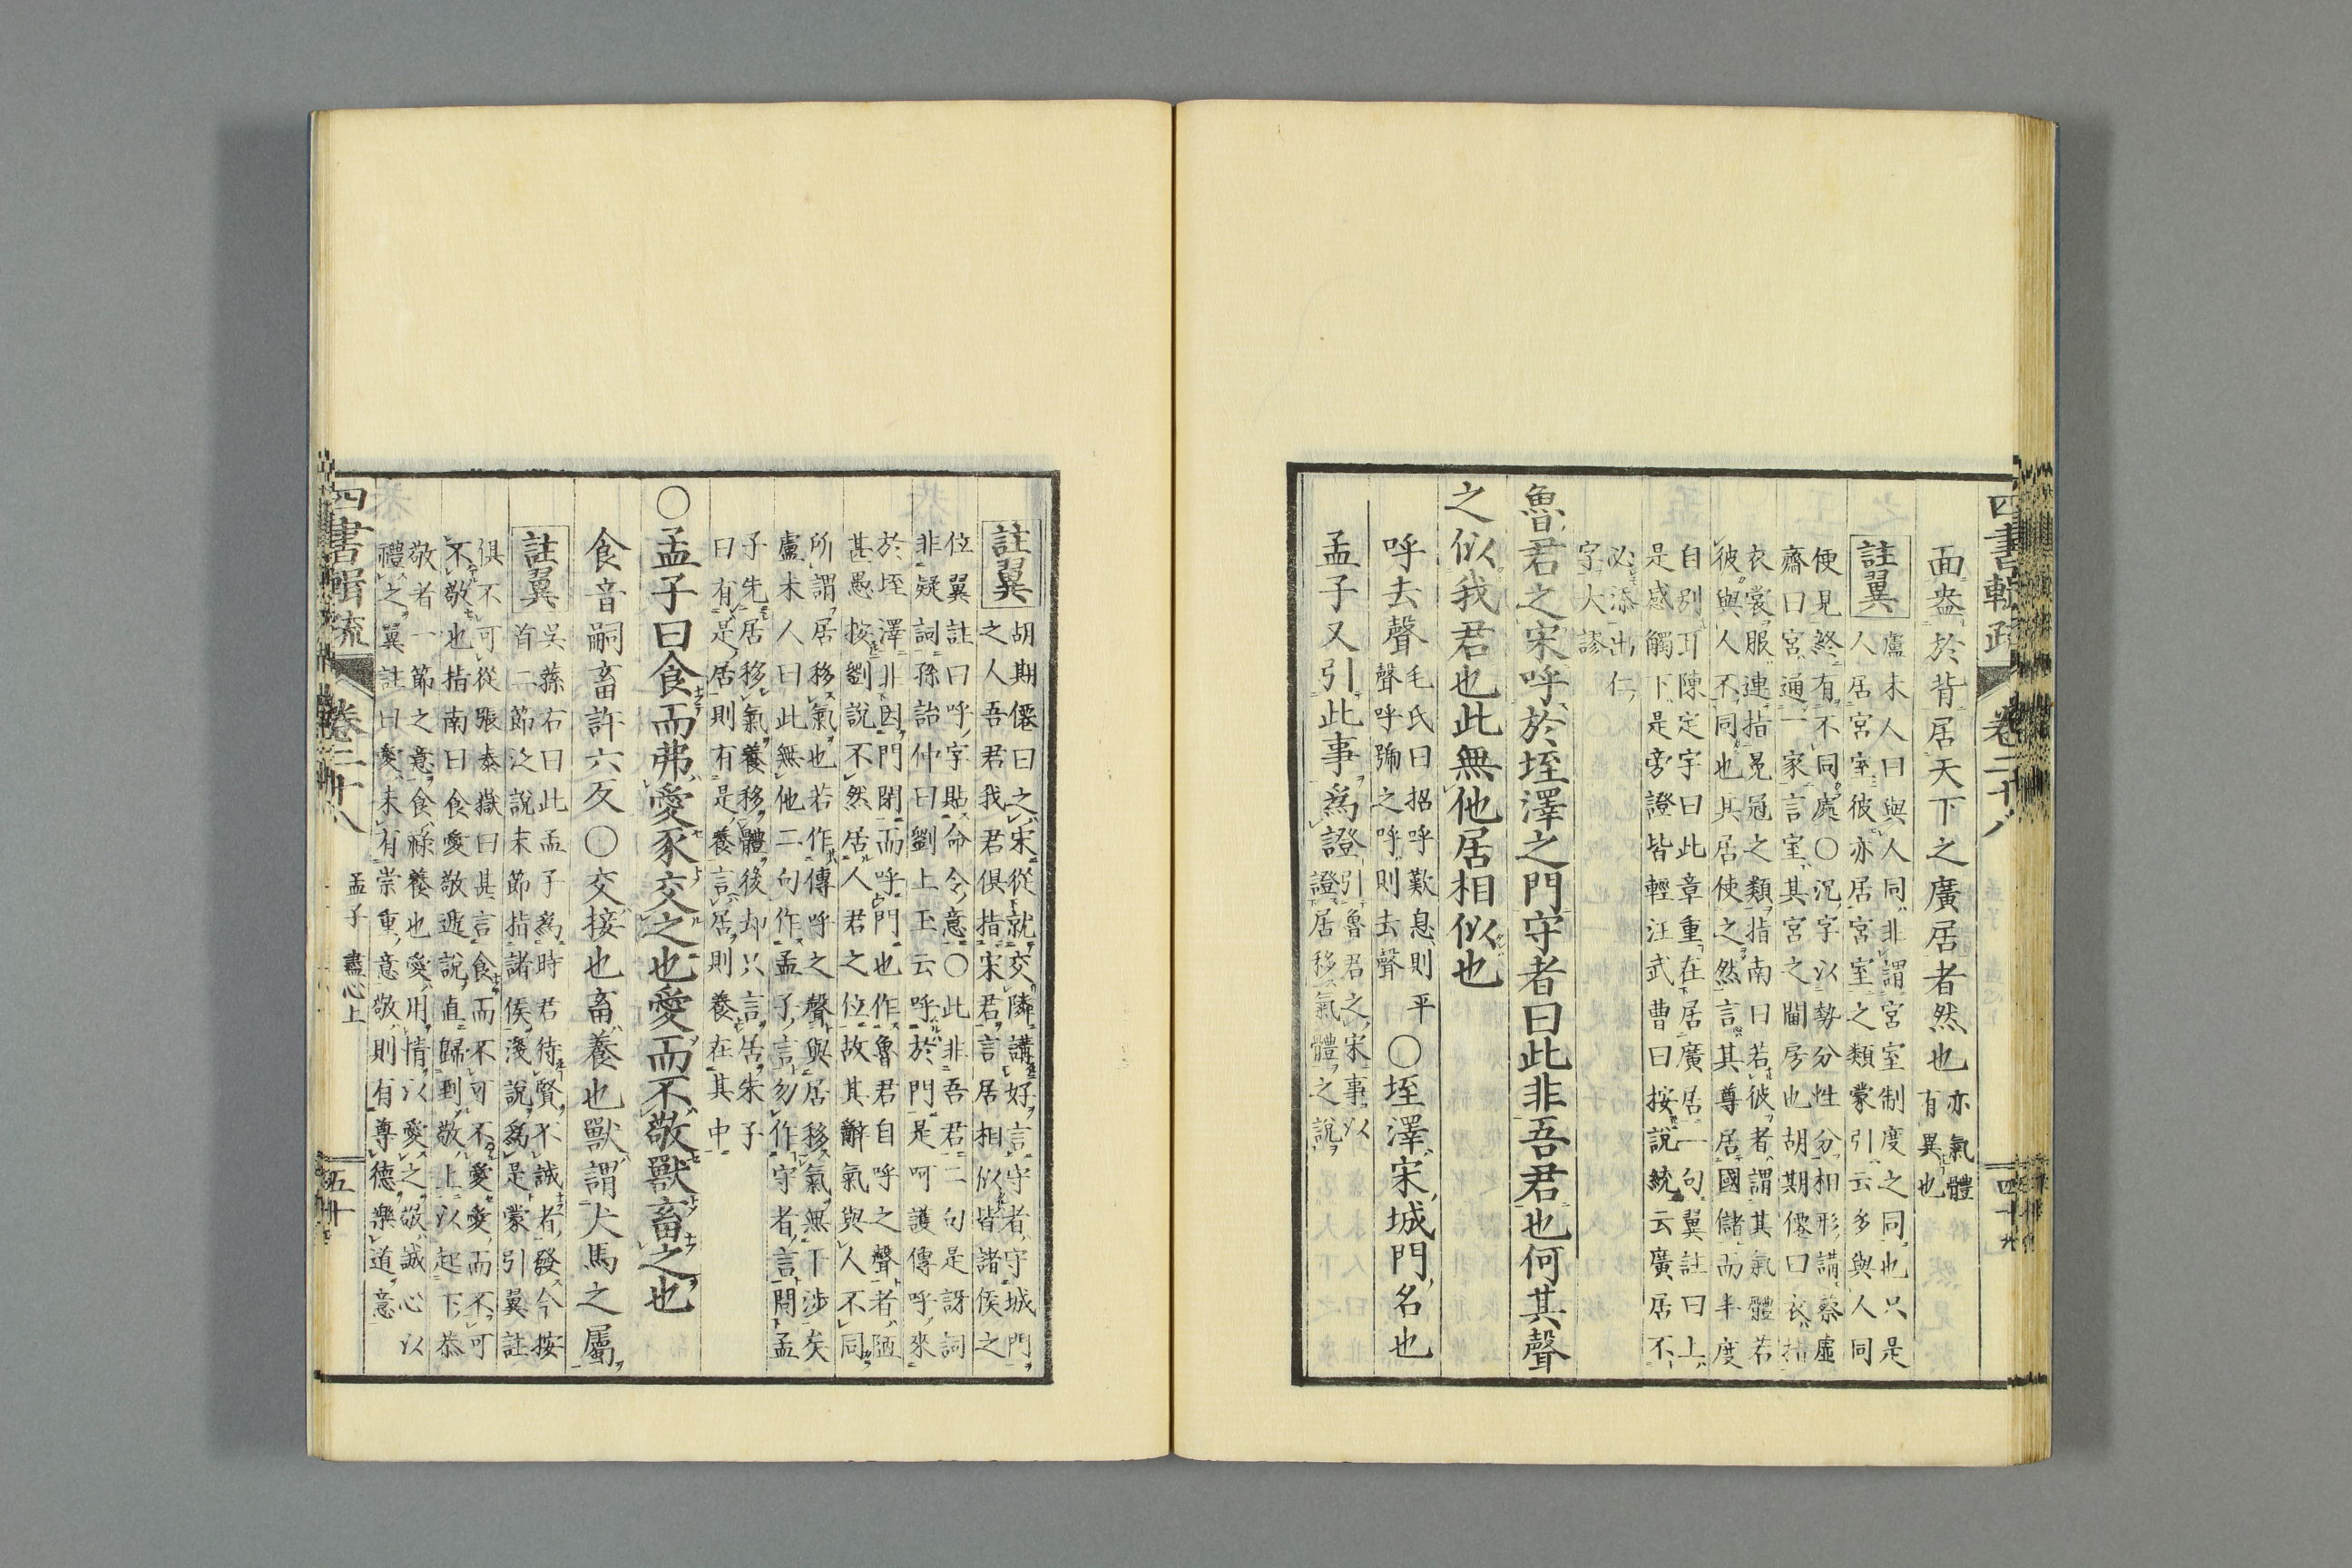 四書輯疏 卷二十八 四十九
面盎於背居天下之廣居者然也 亦氣體
有異也
註翼 盧未人曰與人同非謂宮室制度之同也只是
人居宮室彼亦居宮室之類蒙引云多與人同
便見終有不同處〇況字以勢分性分相形講蔡虛
齋曰宮通一家言室其宮之閫房也胡期僊曰衣指
衣裳服連指冕冠之類指南曰若彼者謂其氣體若
彼與人不同也其居使之然言其尊居國儲而半度
自別耳陳定宇曰此章重在居廣居一句翼註曰上
是感觸下是旁證皆輕汪武曹曰按說統云廣居不
必添出仁
字大謬
魯君之宋呼於垤澤之門守者曰此非吾君也何其聲
之似我君也此無他居相似也
呼去聲 毛氏曰招呼歎息則平
聲呼號之呼則去聲 〇垤澤宋城門名也
孟子又引此事為證 引魯君之宋事以
證居移氣體之說
註翼 胡期僊曰之宋從就交隣講好言守者守城門
之人吾君我君俱指宋君言居相似皆諸侯之
位翼註曰呼字貼命令意〇此非吾君二句是訝詞
非疑詞孫詒仲曰劉上玉云呼於門是呵護傳呼來
於垤澤非因門閉而呼門也作魯君自呼之聲者陋
甚愚按劉說不然居人君之位故其辭氣與人不同
所謂居移氣也若作傳呼之聲與居移氣無干涉矣
盧未人曰此無他二句作孟子言勿作守者言問孟
子先居移氣養移體後却只言居朱子
曰有是居則有是養言居則養在其中
〇孟子曰食而弗愛豕交之也愛而不敬獸畜之也
食音嗣畜許六反〇交接也畜養也獸謂犬馬之屬
註翼 吳蓀右曰此孟子為時君待賢不誠者發今按
首二節泛說末節指諸侯淺說為是蒙引翼註
俱不可從張泰嶽曰甚言食而不可不愛愛而不可
不敬也指南曰食愛敬遞說直歸到敬上以起下恭
敬者一節之意食祿養也愛用情以愛之敬誠心以
禮之翼註曰愛未有崇重意敬則有尊德樂道意
四書輯疏 卷二十八 孟子 盡心上 五十